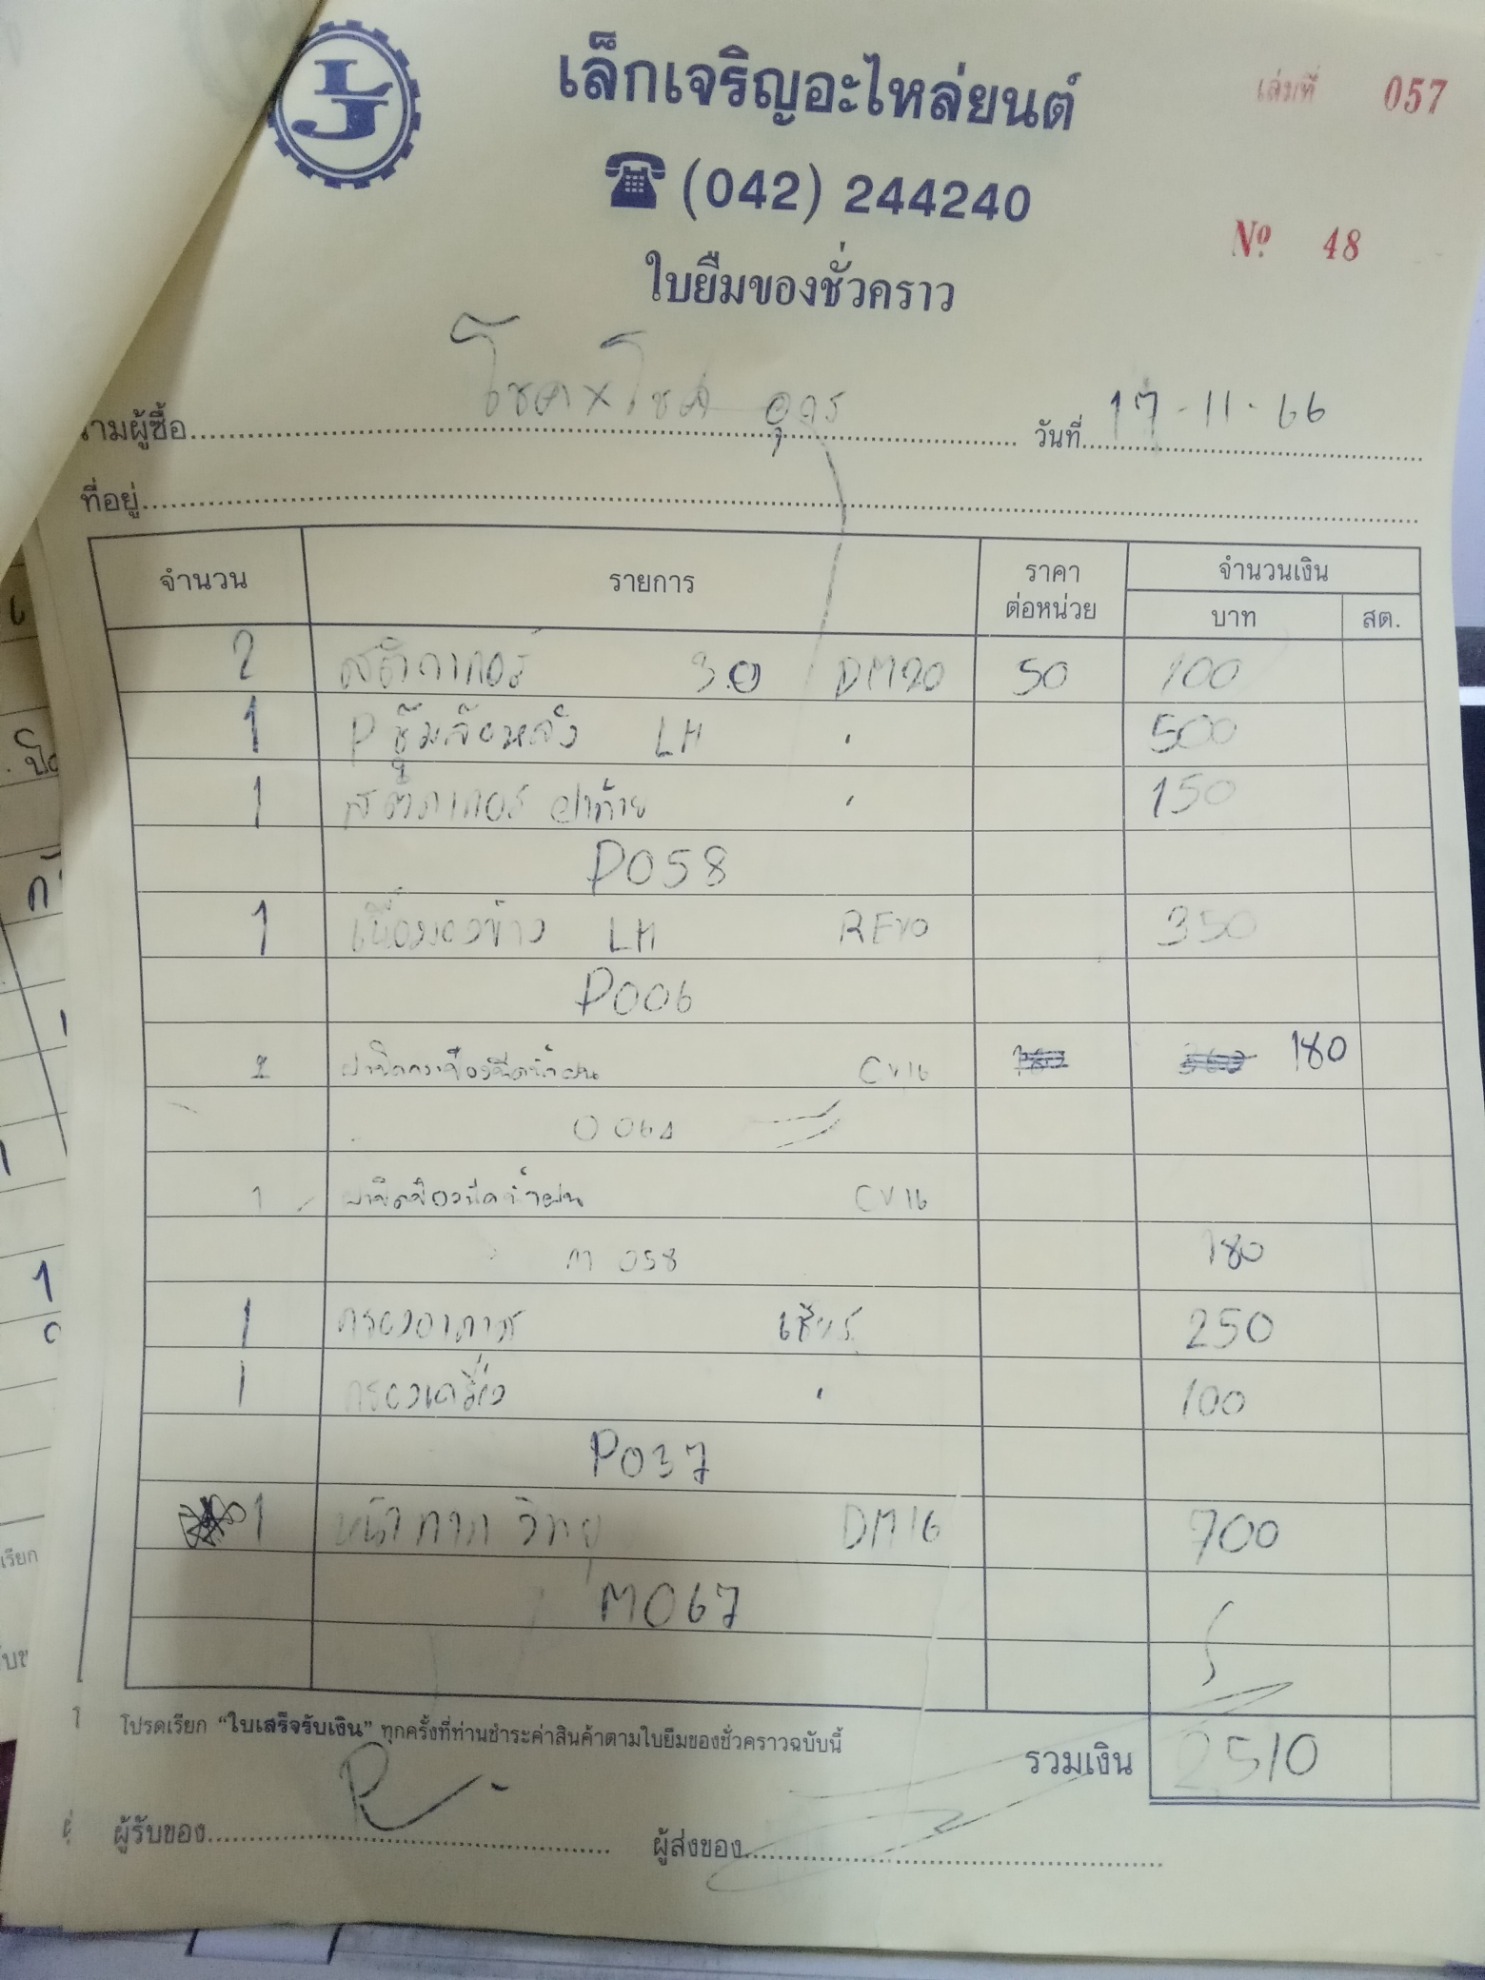 LJ
เล็กเจริญอะไหล่ยนต์
เล่มที่ 057
(042) 244240
Nº 48
ใบยืมของชั่วคราว
นามผู้ซื้อ โชค x โชค อุดร วันที่ 17-11-66
ที่อยู่
จำนวน รายการ ราคาต่อหน่วย จำนวนเงิน
บาท สต.
2 สติกเกอร์ 3.0 DM20 50 100
1 P ซุ้มล้อหลัง LH 500
1 สติกเกอร์ ฝาท้าย 150
P058
1 LH REVO 350
P006
CV16 180
1 CV16
M 058 180
1 กรองอากาศ เชียร์ 250
1 กรองเครื่อง 100
P037
1 หน้ากาก วิทยุ DM16 700
M067
โปรดเรียก “ใบเสร็จรับเงิน” ทุกครั้งที่ท่านชำระค่าสินค้าตามใบยืมของชั่วคราวฉบับนี้
รวมเงิน 2510
ผู้รับของ ผู้ส่งของ